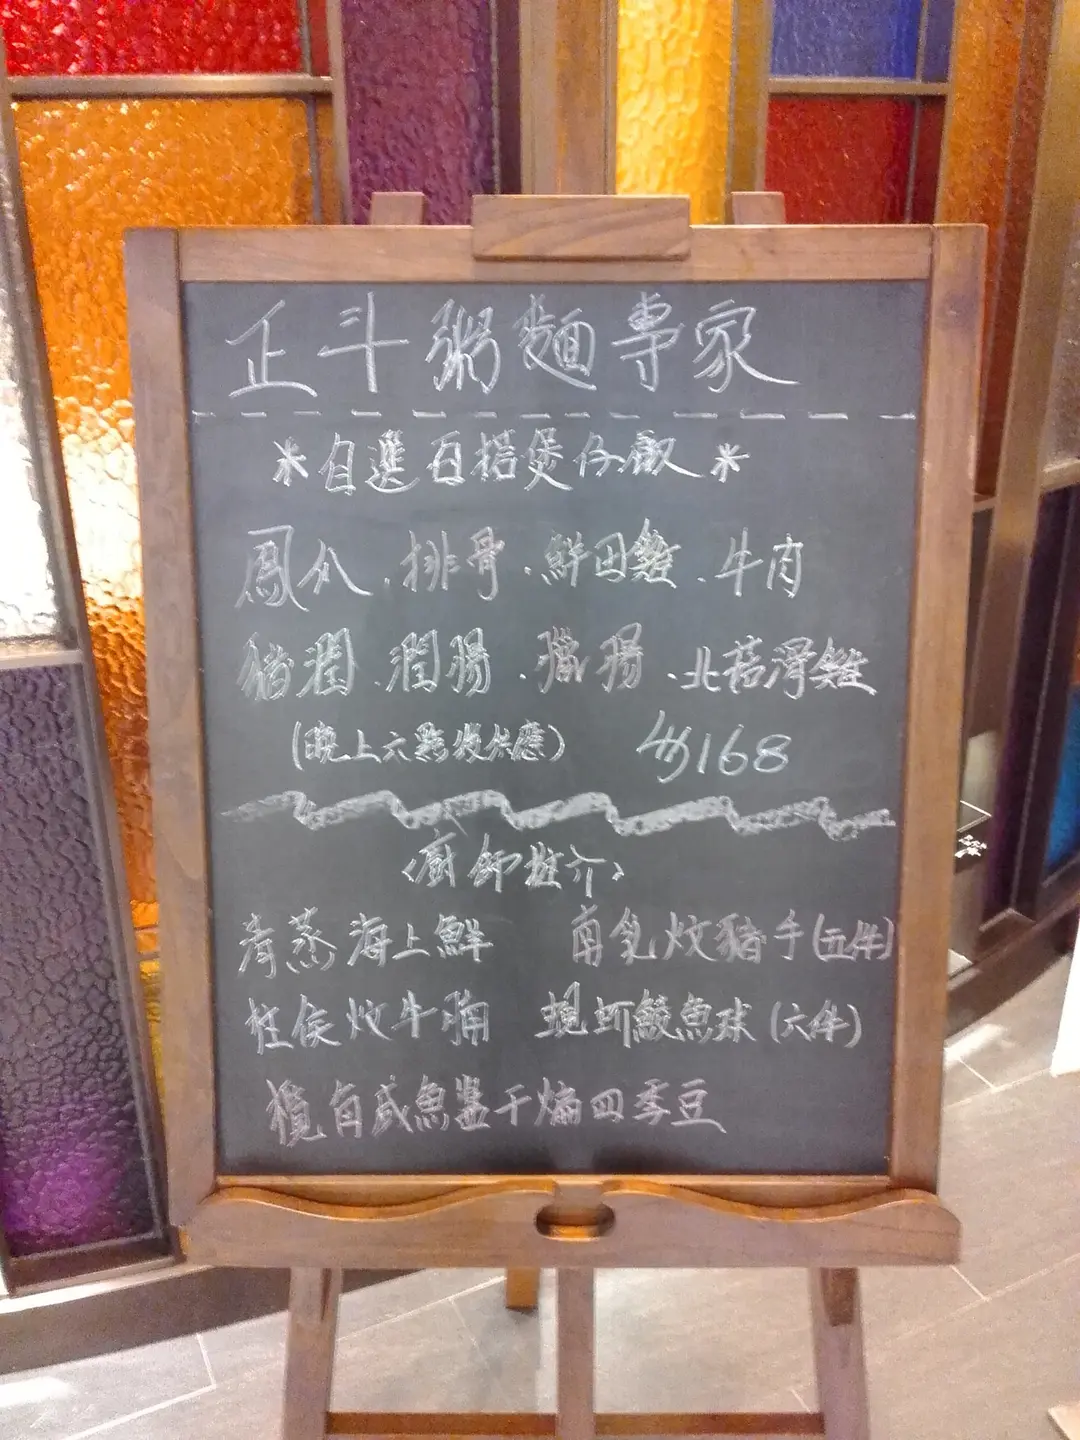 正斗粥麵專家
*自選百搭煲仔飯*
鳳爪.排骨.鮮田雞.牛肉
豬潤.潤腸.臘腸.北菇滑雞
(晚上六點後供應) 168
<廚師推介>
清蒸海上鮮 南乳炆豬手(五件)
柱侯炆牛腩 蜆蚧鯪魚球(六件)
欖角咸魚醬干煸四季豆